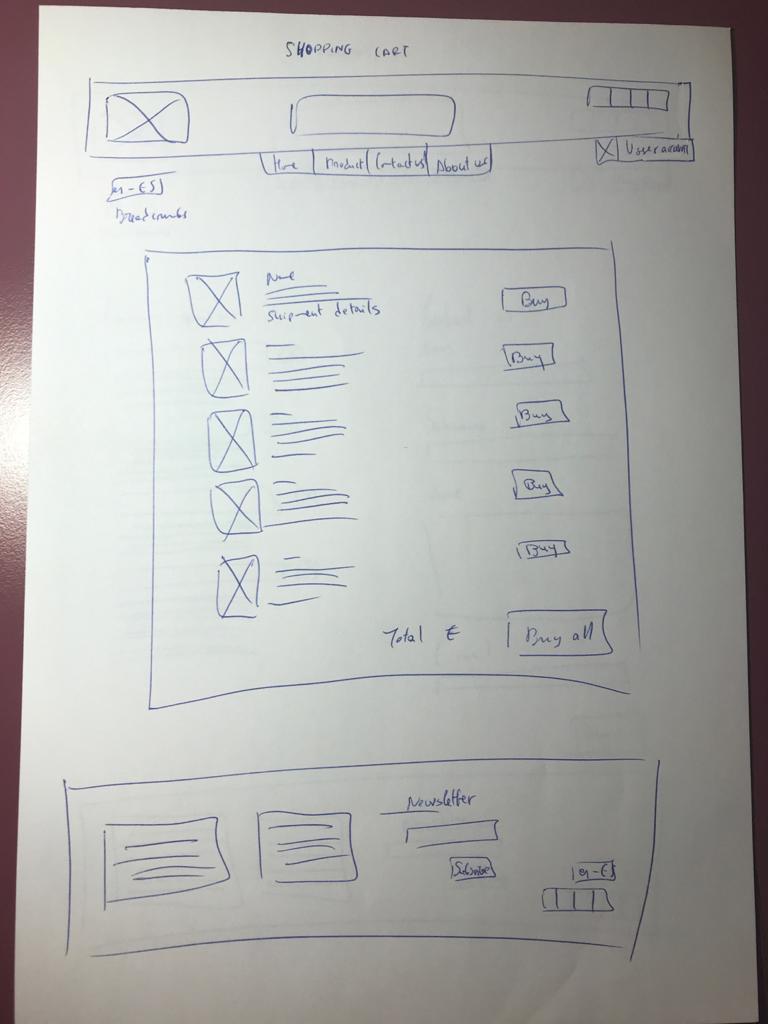 SHOPPING CART
Home Product Contact us About us
User account
en-ES
Breadcrumbs
Name
Shipment details
Buy
Buy
Buy
Buy
Buy
Total €
Buy all
Newsletter
Subscribe
en-ES